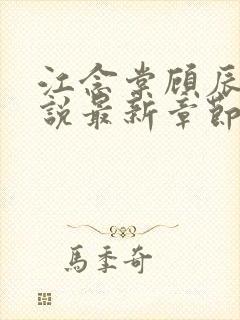 江念棠顾辰
說最新章節
馬季奇